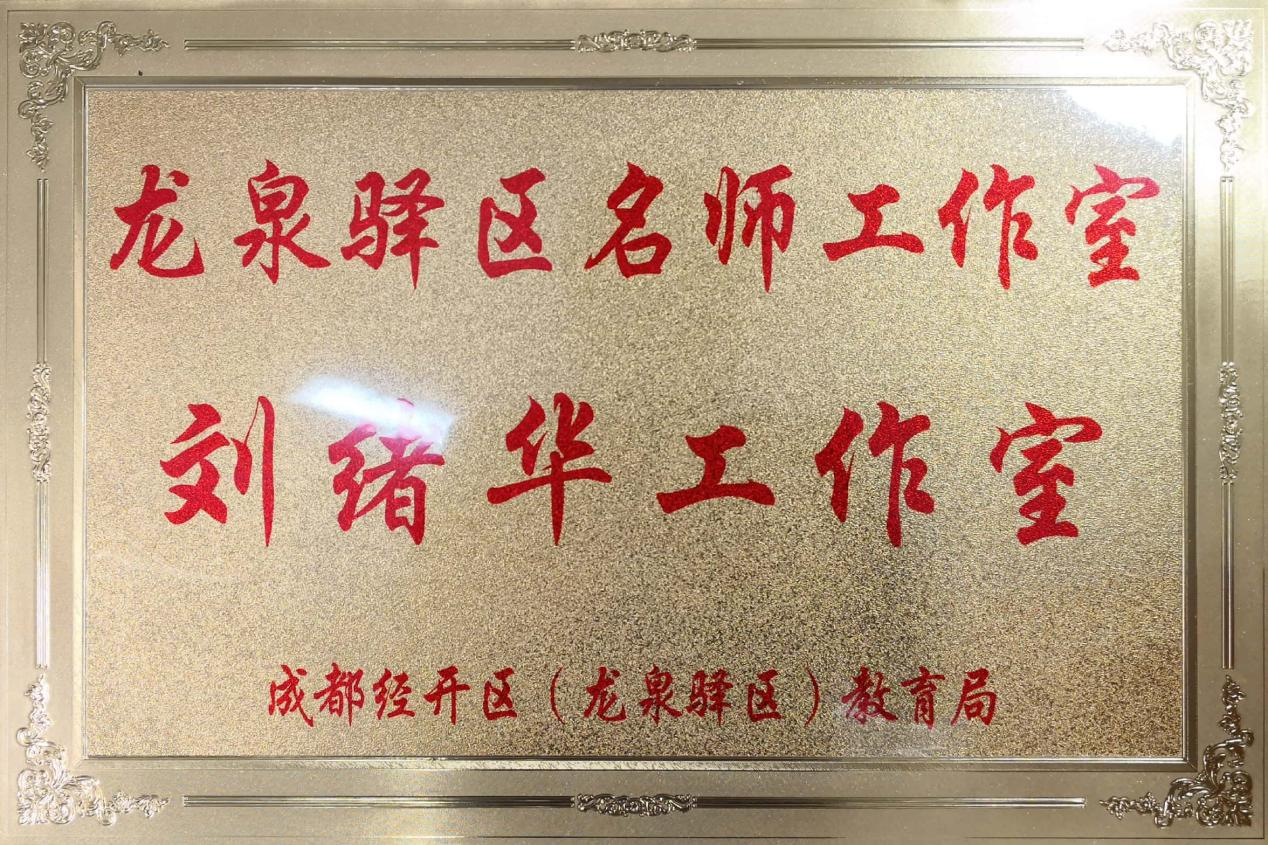 龙泉驿区名师工作室
刘绪华工作室
成都经开区（龙泉驿区）教育局